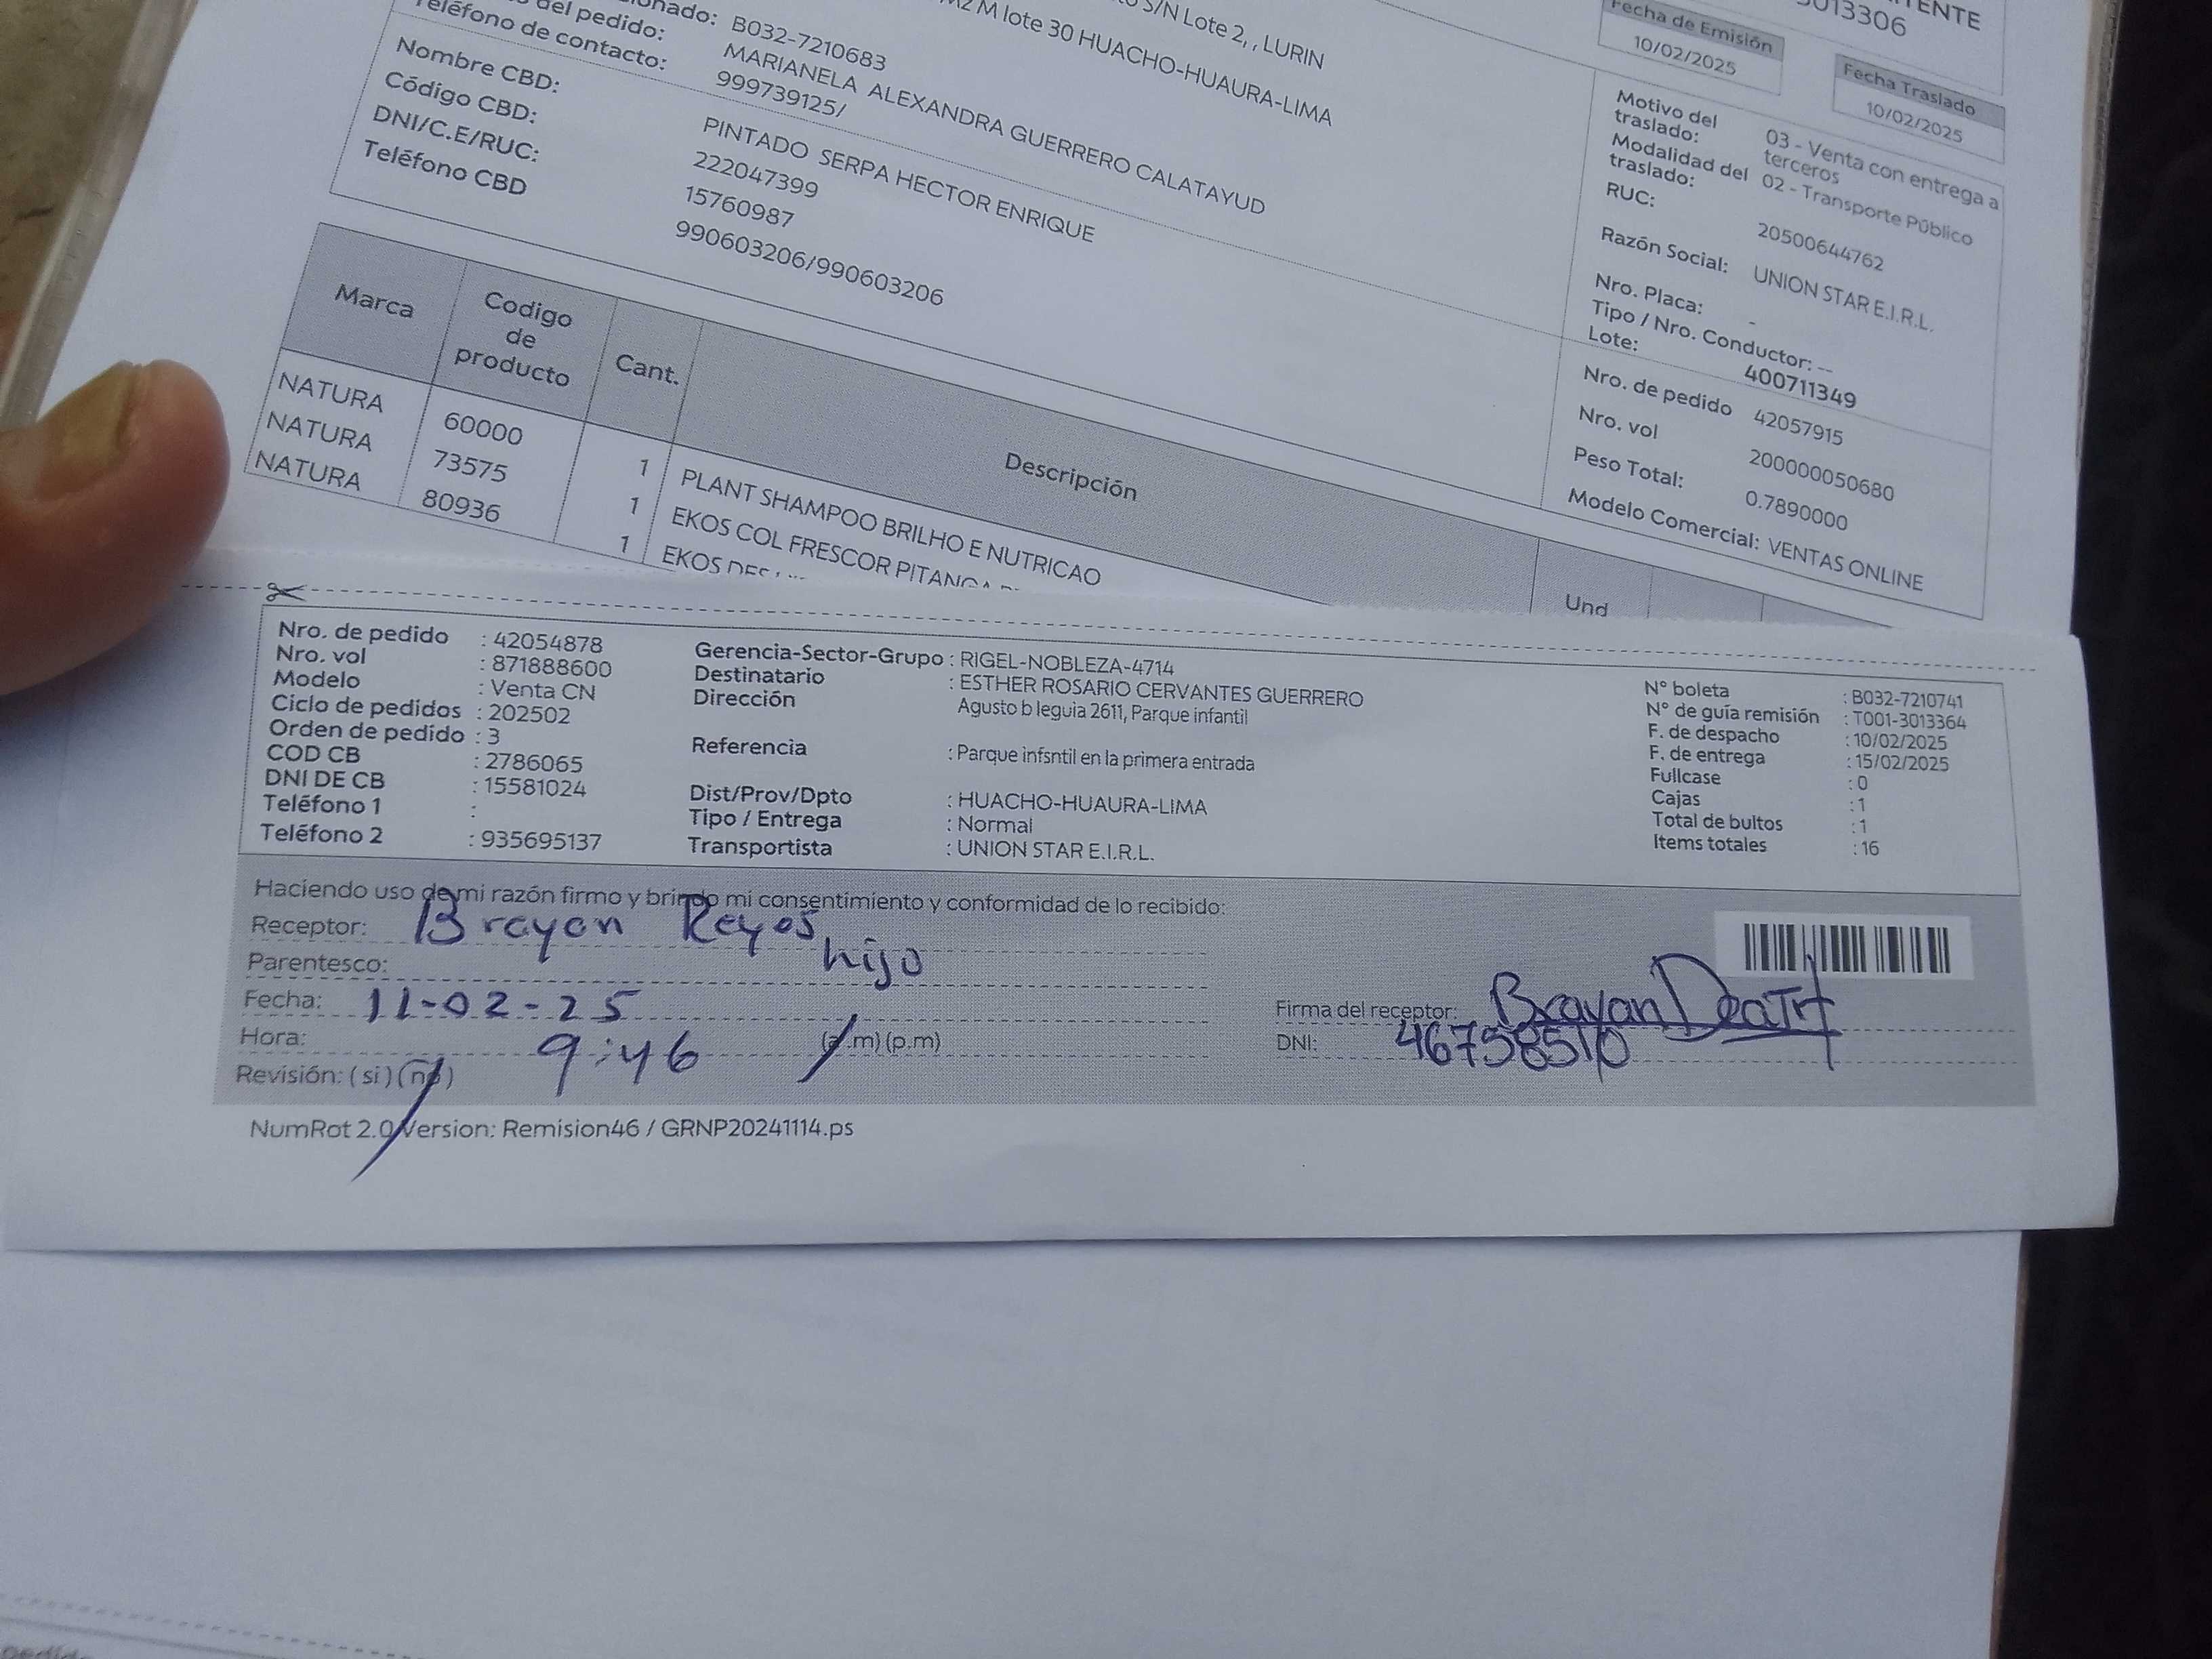 S/N Lote 2, , LURIN
M lote 30 HUACHO-HUAURA-LIMA
B032-7210683
del pedido: MARIANELA ALEXANDRA GUERRERO CALATAYUD
Teléfono de contacto: 999739125/
Nombre CBD: PINTADO SERPA HECTOR ENRIQUE
Código CBD: 222047399
DNI/C.E/RUC: 15760987
Teléfono CBD 990603206/990603206
3013306
Fecha de Emisión
10/02/2025
Fecha Traslado
10/02/2025
Motivo del traslado: 03 - Venta con entrega a terceros
Modalidad del traslado: 02 - Transporte Público
RUC: 20500644762
Razón Social: UNION STAR E.I.R.L.
Nro. Placa: -
Tipo / Nro. Conductor: --
Lote: 400711349
Nro. de pedido 42057915
Nro. vol 200000050680
Peso Total: 0.7890000
Modelo Comercial: VENTAS ONLINE
Marca Codigo de producto Cant. Descripción Und
NATURA 60000 1 PLANT SHAMPOO BRILHO E NUTRICAO
NATURA 73575 1 EKOS COL FRESCOR PITANGA
NATURA 80936 1 EKOS
Nro. de pedido : 42054878
Nro. vol : 871888600
Modelo : Venta CN
Ciclo de pedidos : 202502
Orden de pedido : 3
COD CB : 2786065
DNI DE CB : 15581024
Teléfono 1 :
Teléfono 2 : 935695137
Gerencia-Sector-Grupo : RIGEL-NOBLEZA-4714
Destinatario : ESTHER ROSARIO CERVANTES GUERRERO
Dirección Agusto b leguia 2611, Parque infantil
Referencia : Parque infsntil en la primera entrada
Dist/Prov/Dpto : HUACHO-HUAURA-LIMA
Tipo / Entrega : Normal
Transportista : UNION STAR E.I.R.L.
N° boleta : B032-7210741
N° de guía remisión : T001-3013364
F. de despacho : 10/02/2025
F. de entrega : 15/02/2025
Fullcase : 0
Cajas : 1
Total de bultos : 1
Items totales : 16
Haciendo uso de mi razón firmo y brindo mi consentimiento y conformidad de lo recibido:
Receptor: Brayan Reyes
Parentesco: hijo
Fecha: 11-02-25
Hora: 9:46 (a.m) (p.m)
Revisión: ( si ) ( no )
Firma del receptor: Brayan
DNI: 46758510
NumRot 2.0 Version: Remision46 / GRNP20241114.ps